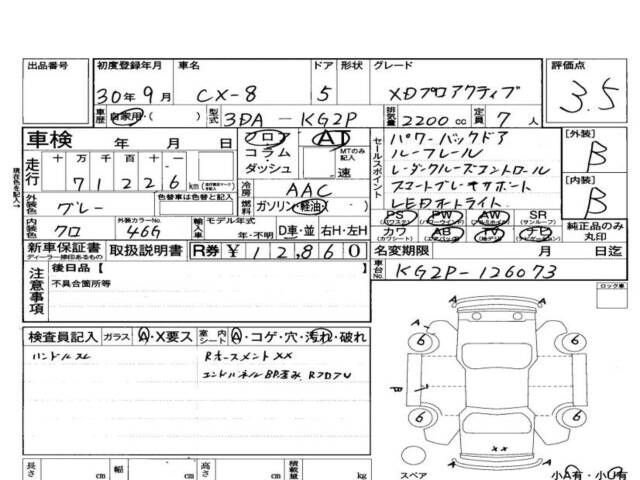 出品番号 初度登録年月 車名 ドア 形状 グレード 評価点
30年9月 CX-8 5 XDプロアクティブ 3.5
車歴 自家用・( ) 型式 3DA-KG2P 排気量 2200cc 定員 7人
車検 年 月 日 フロア AT
コラム MTのみ記入
ダッシュ 速
走行 十 万 千 百 十 一
7 1 2 2 6 km
冷房 AAC
外装色 グレー 色替車は色替と記入 燃料 ガソリン・軽油・( )
内装色 クロ 外装カラーNo. 46G 輸入車 モデル年式 年・不明 D車・並 右H・左H
セールスポイント パワーバックドア
ルーフレール
レーダクルーズコントロール
スマートブレーキサポート
LEDオートライト
PS (パワステ) PW (パワーウインド) AW (アルミホイル) SR (サンルーフ)
カワ (カワシート) AB (エアバッグ) TV ナビ
[外装]
B
[内装]
B
純正品のみ丸印
新車保証書 取扱説明書 R券 ¥12,860
ディーラー捺印あるもの
名変期限 月 日迄
車台No. KG2P-126073
現在色を記入→
注意事項 後日品【 】
不具合箇所等
ロック車
検査員記入 ガラス A・X要ス 室内シート A・コゲ・穴・汚れ・破れ
ハンドルスレ
A
A
A
B
6 6
6 6
××
A
スペア
小A有・小U有
長さ cm 幅 cm 高さ cm 積載量 kg